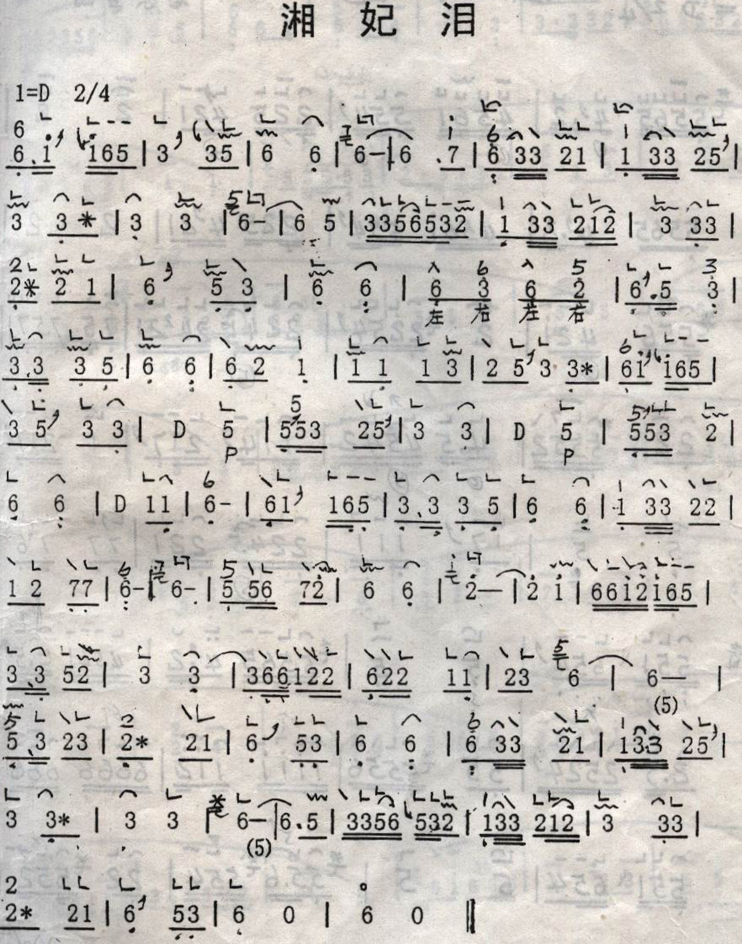 湘 妃 泪
1=D 2/4
6.1 165 | 3 35 | 6 6 | 6- | 6 .7 | 6 33 21 | 1 33 25 |
3 3 * | 3 3 | 6- | 6 5 | 3356532 | 1 33 212 | 3 33 |
2* 2 1 | 6 5 3 | 6 6 | 6 3 6 2 | 6.5 3 |
左 右 左 右
3.3 3 5 | 6 6 | 6 2 1 | 1 1 1 3 | 2 5 3 3* | 61 165 |
3 5 3 3 | D 5 | 553 25 | 3 3 | D 5 | 553 2 |
P P
6 6 | D 11 | 6- | 61 165 | 3.3 3 5 | 6 6 | 1 33 22 |
1 2 77 | 6- | 6- | 5 56 72 | 6 6 | 2— | 2 1 | 6612165 |
3.3 52 | 3 3 | 366122 | 622 11 | 23 6 | 6— |
(5)
5.3 23 | 2* 21 | 6 53 | 6 6 | 6 33 21 | 133 25 |
3 3* | 3 3 | 6— | 6.5 | 3356 532 | 133 212 | 3 33 |
(5)
2* 21 | 6 53 | 6 0 | 6 0 ||